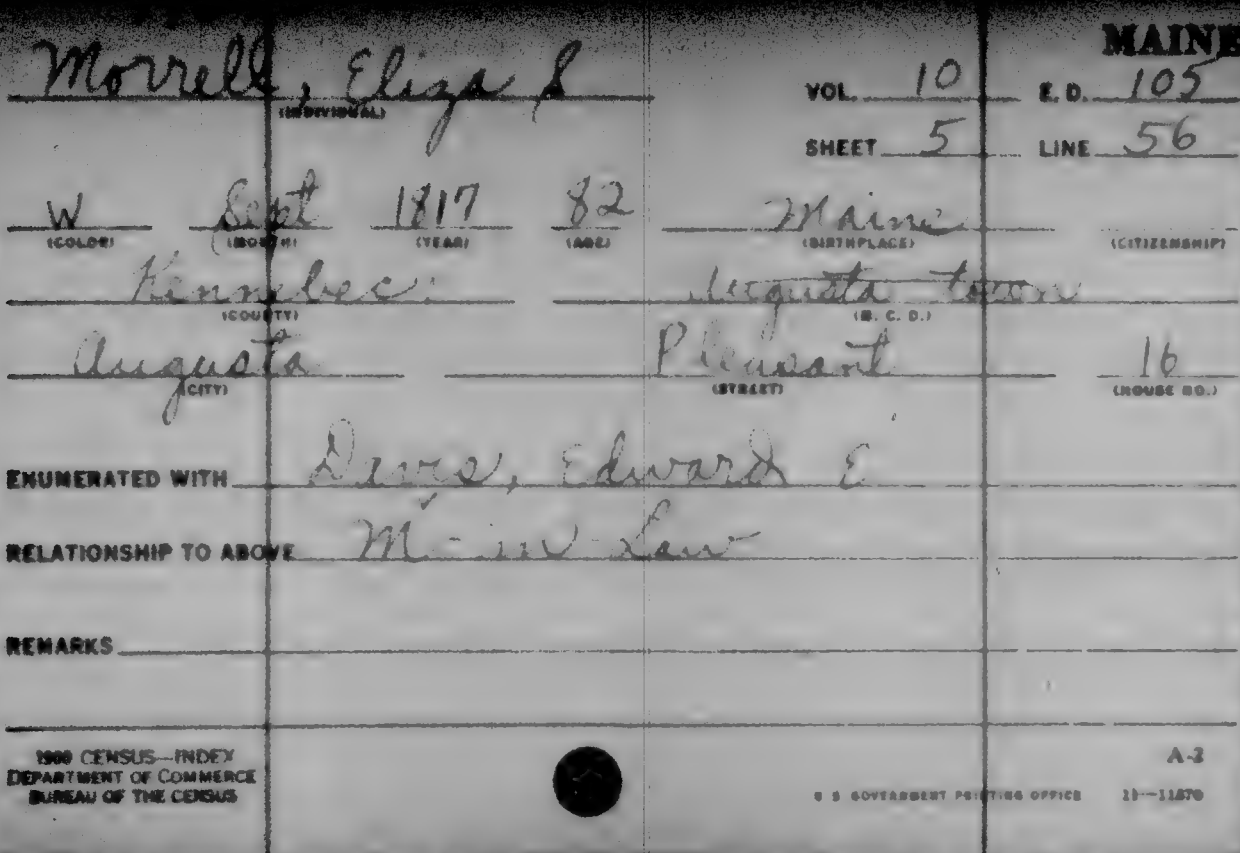 MAINE
Morrell, Eliza S
(INDIVIDUAL)
VOL. 10 E. D. 105
SHEET 5 LINE 56
W Sept 1817 82 Maine
(COLOR) (MONTH) (YEAR) (AGE) (BIRTHPLACE) (CITIZENSHIP)
Kennebec Augusta town
(COUNTY) (M. C. D.)
Augusta Pleasant 16
(CITY) (STREET) (HOUSE NO.)
ENUMERATED WITH Davis, Edward E
RELATIONSHIP TO ABOVE M-in-Law
REMARKS
1900 CENSUS—INDEX
DEPARTMENT OF COMMERCE
BUREAU OF THE CENSUS
A-2
U S GOVERNMENT PRINTING OFFICE 11—11870